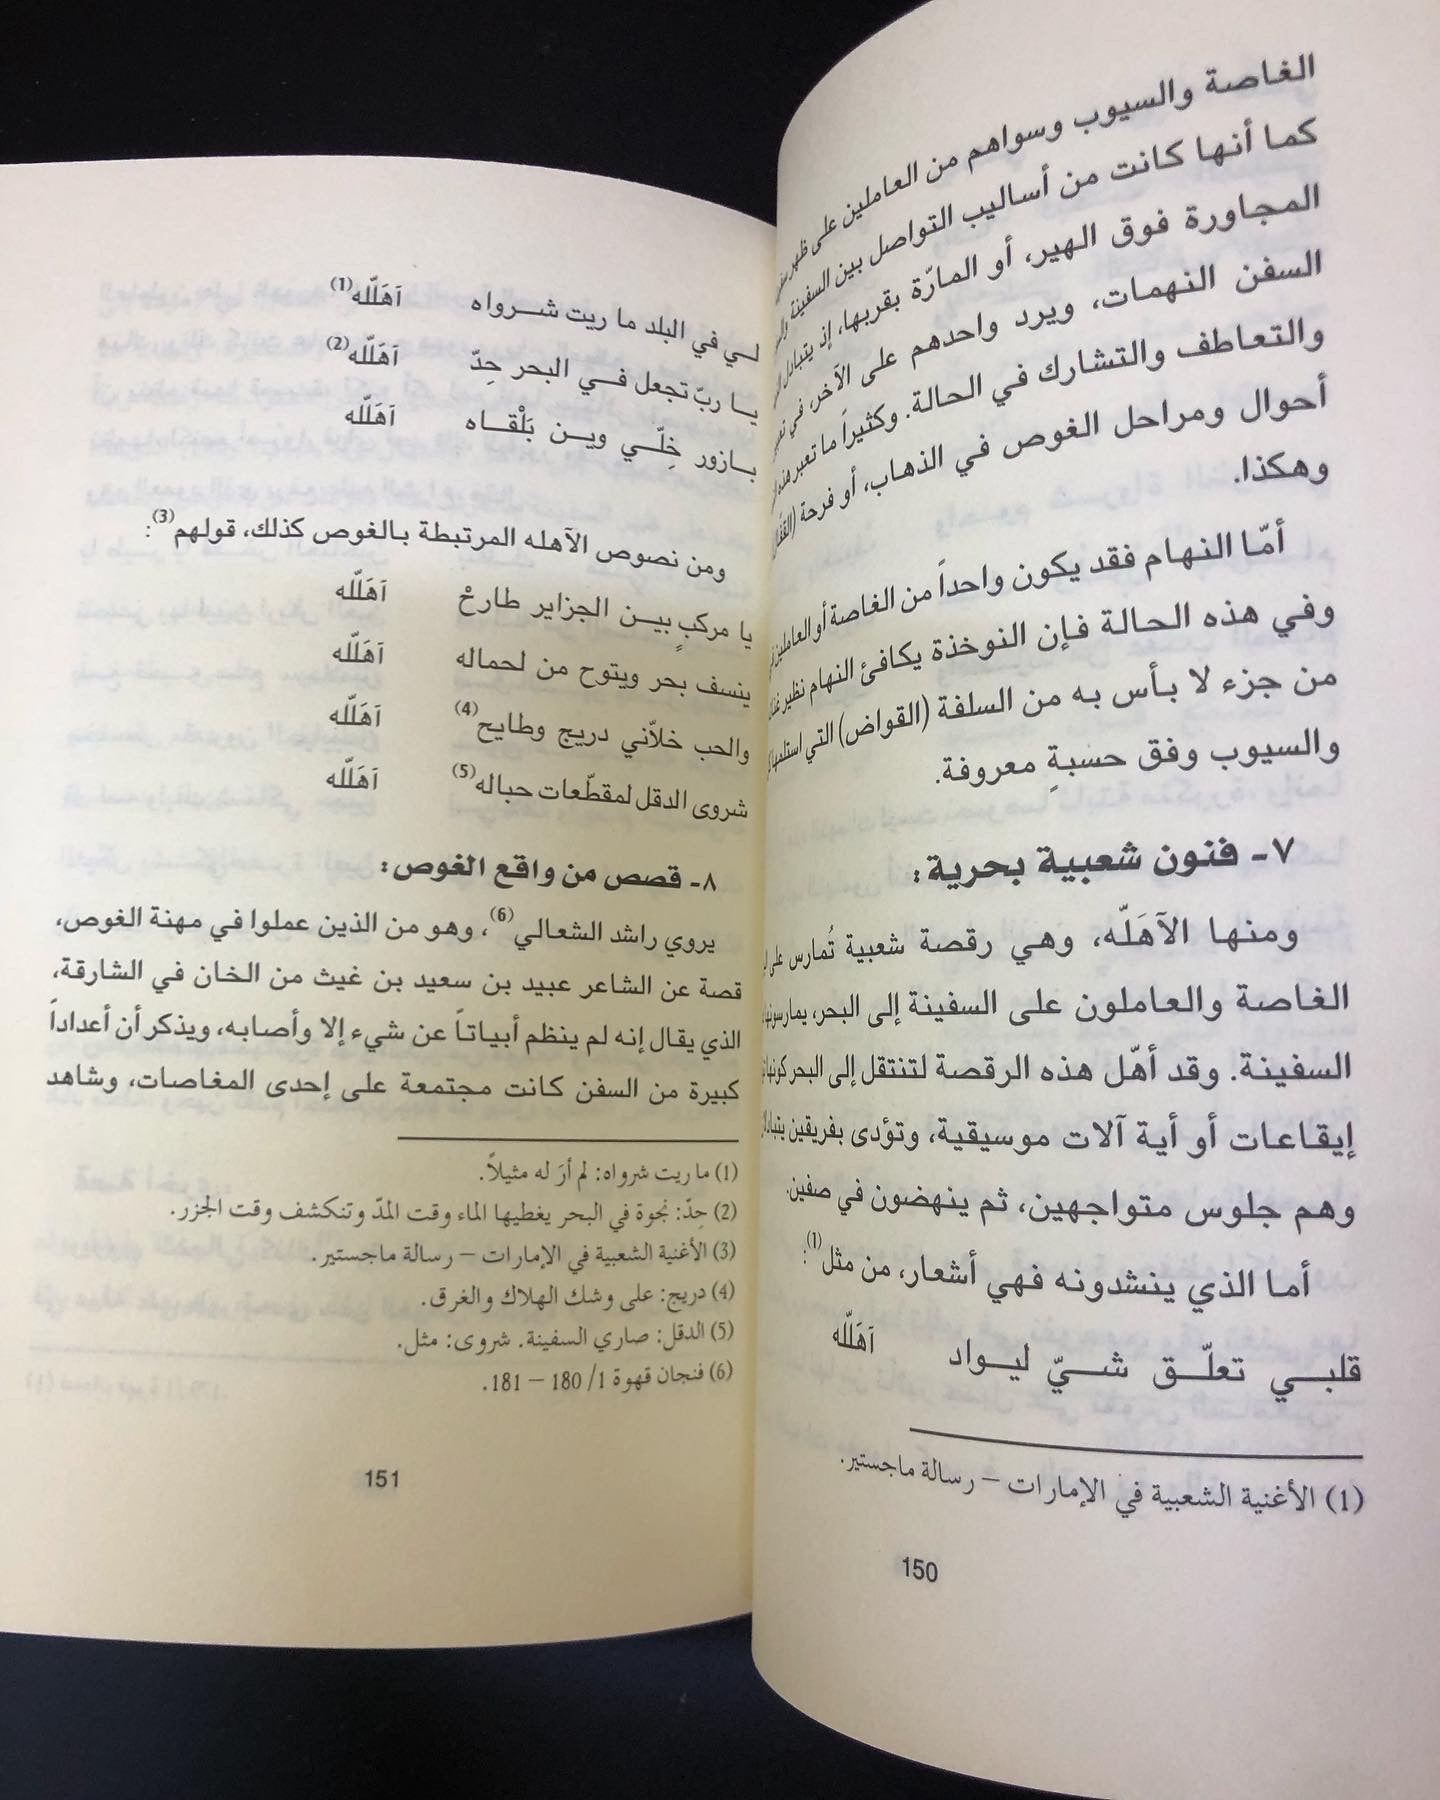 الغاصة والسيوب وسواهم من العاملين على ظهر
كما أنها كانت من أساليب التواصل بين السفينة
المجاورة فوق الهير، أو المارّة بقربها، إذ يتبادل
السفن النهمات، ويرد واحدهم على الآخر، في
والتعاطف والتشارك في الحالة. وكثيراً ما تعبر هذه
أحوال ومراحل الغوص في الذهاب، أو فرحة
وهكذا.
أمّا النهام فقد يكون واحداً من الغاصة أو العاملين
وفي هذه الحالة فإن النوخذة يكافئ النهام نظير
من جزء لا بأس به من السلفة (القواض) التي استلمها
والسيوب وفق حسبةٍ معروفة.
٧- فنون شعبية بحرية:
ومنها الآهَلّه، وهي رقصة شعبية تُمارس على
الغاصة والعاملون على السفينة إلى البحر، يمارسونها
السفينة. وقد أهّل هذه الرقصة لتنتقل إلى البحر كونها
إيقاعات أو أية آلات موسيقية، وتؤدى بفريقين
وهم جلوس متواجهين، ثم ينهضون في صفين.
أما الذي ينشدونه فهي أشعار، من مثل(1):
قلبـي تعلّـق شـيّ ليـواد آهَلّله
(1) الأغنية الشعبية في الإمارات – رسالة ماجستير.
150
لـي في البلد ما ريت شـرواه آهَلّله(1)
يـا ربّ تجعل فـي البحر حِدّ آهَلّله(2)
بـازور خِلّـي ويـن بَلْقـاه آهَلّله
ومن نصوص الآهله المرتبطة بـالغوص كذلك، قولهم(3):
يا مركبٍ بيـن الجزاير طارحْ آهَلّله
ينسف بحر ويتوح من لحماله آهَلّله
والحب خلاّني دريج وطايح(4) آهَلّله
شروى الدقل لمقطّعات حباله(5) آهَلّله
٨- قصص من واقع الغوص:
يروي راشد الشعالي(6)، وهو من الذين عملوا في مهنة الغوص،
قصة عن الشاعر عبيد بن سعيد بن غيث من الخان في الشارقة،
الذي يقال إنه لم ينظم أبياتاً عن شيء إلا وأصابه، ويذكر أن أعداداً
كبيرة من السفن كانت مجتمعة على إحدى المغاصات، وشاهد
(1) ما ريت شرواه: لم أرَ له مثيلاً.
(2) حِدّ: نجوة في البحر يغطيها الماء وقت المدّ وتنكشف وقت الجزر.
(3) الأغنية الشعبية في الإمارات – رسالة ماجستير.
(4) دريج: على وشك الهلاك والغرق.
(5) الدقل: صاري السفينة. شروى: مثل.
(6) فنجان قهوة 1/ 180 – 181.
151